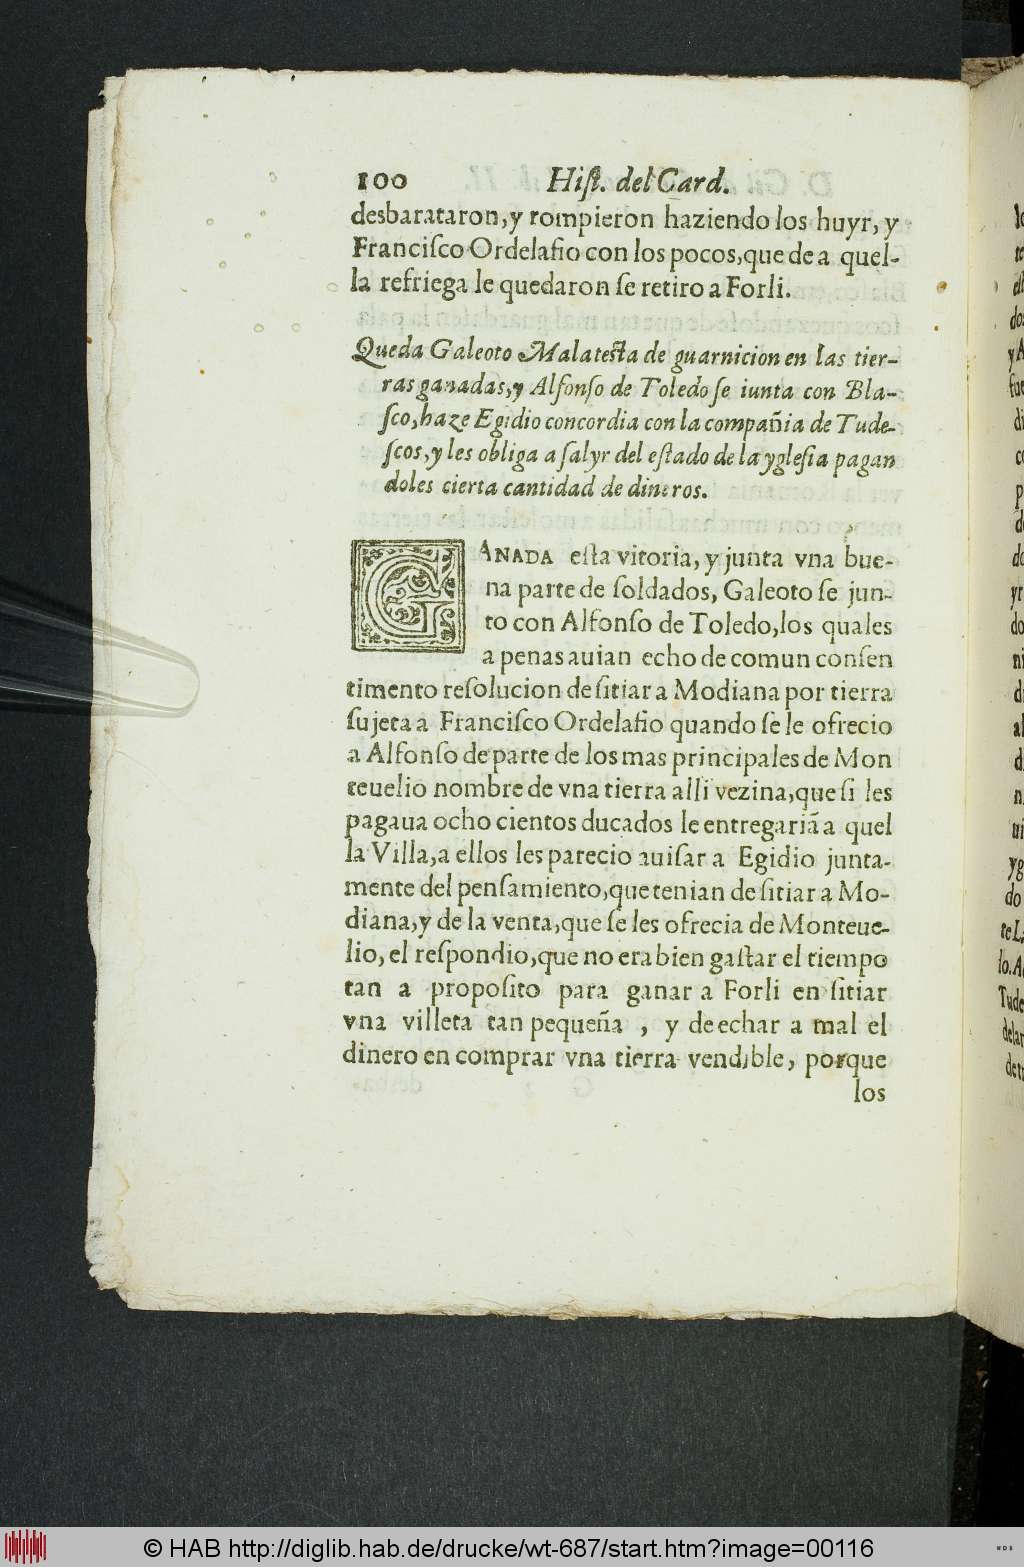 100 Hiſt. del Card.
desbarataron, y rompieron haziendo los huyr, y
Franciſco Ordelafio con los pocos, que de a quel-
la refriega le quedaron ſe retiro a Forli.
Queda Galeoto Malateſta de guarnicion en las tier-
ras ganadas, y Alfonſo de Toledo ſe iunta con Bla-
ſco, haze Egidio concordia con la compañia de Tude-
ſcos, y les obliga a ſalyr del eſtado de la ygleſia pagan
doles cierta cantidad de dineros.
GANADA eſta vitoria, y junta vna bue-
na parte de ſoldados, Galeoto ſe jun-
to con Alfonſo de Toledo, los quales
a penas auian echo de comun conſen
timento reſolucion de ſitiar a Modiana por tierra
ſujeta a Franciſco Ordelafio quando ſe le ofrecio
a Alfonſo de parte de los mas principales de Mon
teuelio nombre de vna tierra alli vezina, que ſi les
pagaua ocho cientos ducados le entregariã a quel
la Villa, a ellos les parecio auiſar a Egidio junta-
mente del penſamiento, que tenian de ſitiar a Mo-
diana, y de la venta, que ſe les ofrecia de Monteue-
lio, el reſpondio, que no era bien gaſtar el tiempo
tan a propoſito para ganar a Forli en ſitiar
vna villeta tan pequeña , y de echar a mal el
dinero en comprar vna tierra vendible, porque
los
© HAB http://diglib.hab.de/drucke/wt-687/start.htm?image=00116